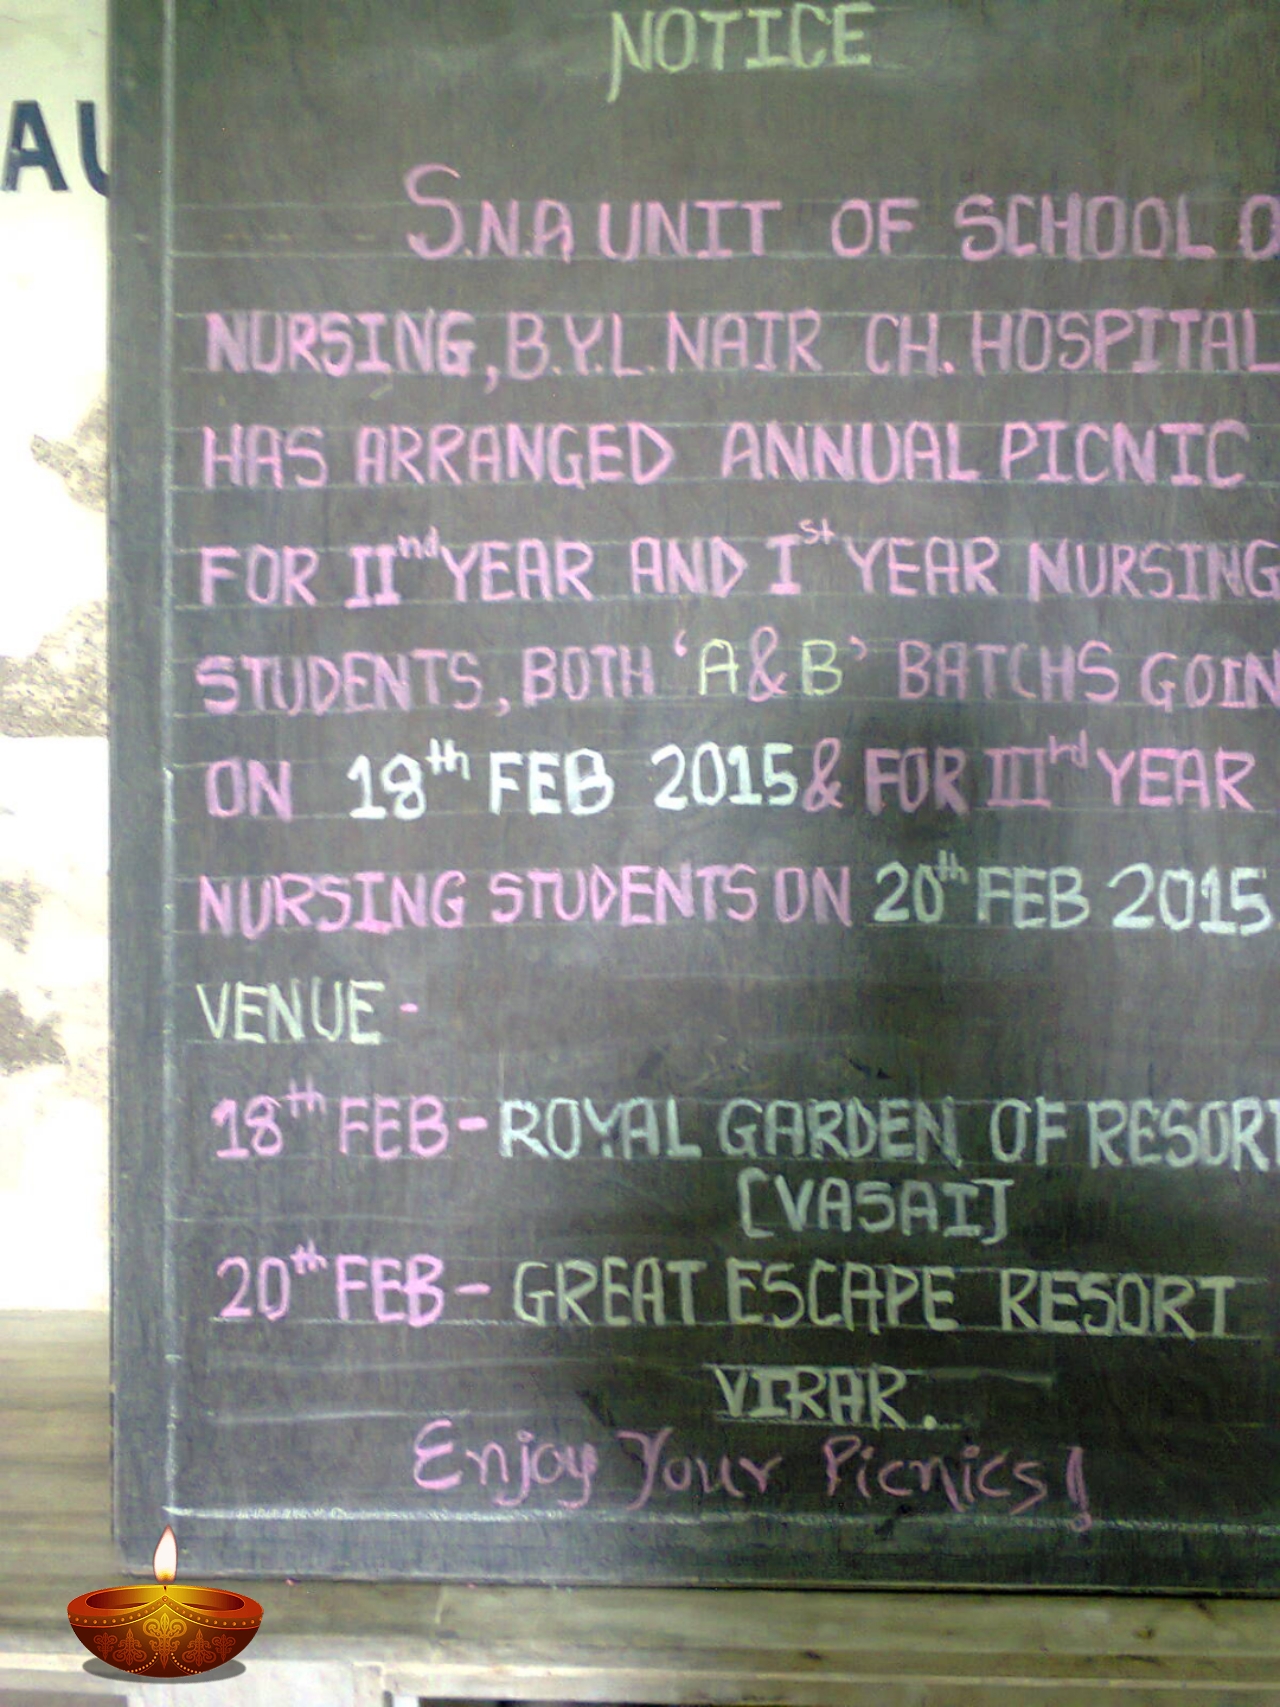 AU
NOTICE
S.N.A UNIT OF SCHOOL O
NURSING, B.Y.L. NAIR CH. HOSPITAL
HAS ARRANGED ANNUAL PICNIC
FOR IInd YEAR AND Ist YEAR NURSING
STUDENTS, BOTH 'A & B' BATCHS GOIN
ON 18th FEB 2015 & FOR IIIrd YEAR
NURSING STUDENTS ON 20th FEB 2015
VENUE -
18th FEB - ROYAL GARDEN OF RESORT
[VASAI]
20th FEB - GREAT ESCAPE RESORT
VIRAR.
Enjoy Your Picnics!